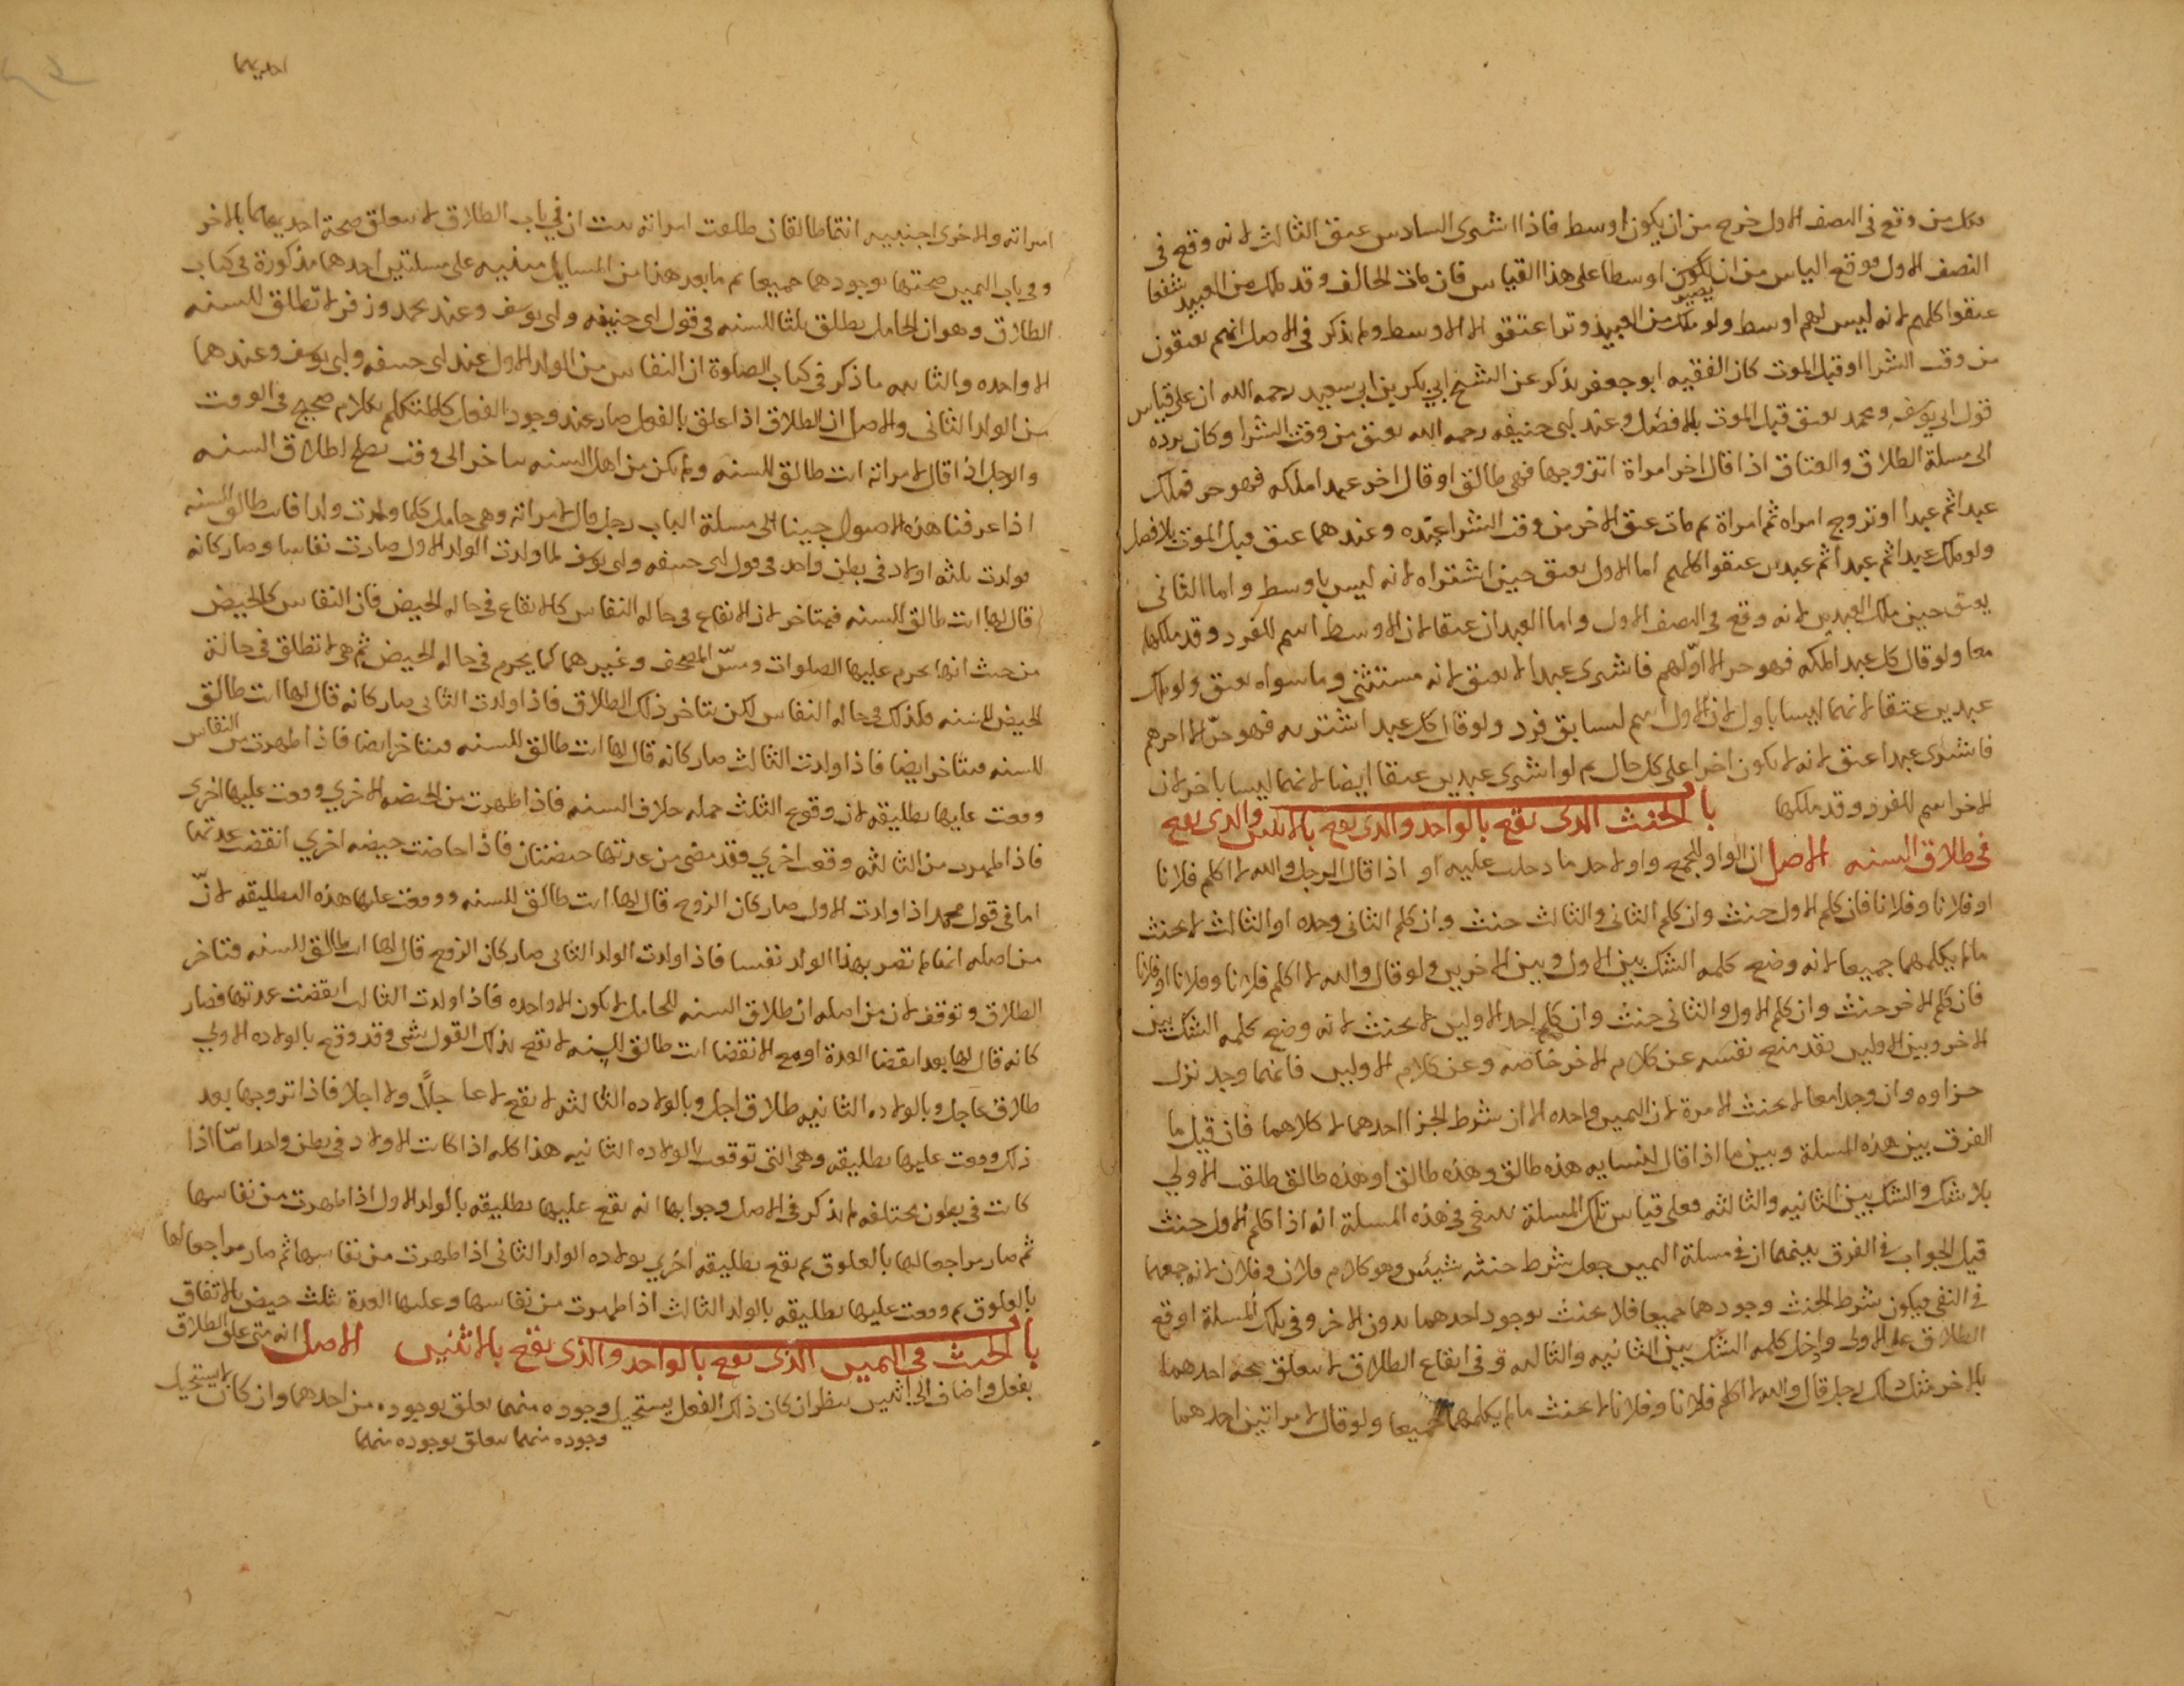 فكل من وقع في النصف الاول خرج من ان يكون اوسط فاذا اشترى السادس عتق الثالث لانه وقع في
النصف الاول ووقع الياس من ان يكون يصير اوسطا على هذا القياس فان مات الحالف وقد ملك من العبيد شفعا
عتقوا كلهم لانه ليس لهم اوسط ولو ملك من العبيد وترا عتقوا الا الاوسط ولم يذكر في الاصل انهم يعتقون
من وقت الشرا او قبل الموت كان الفقيه ابو جعفر يذكر عن الشيخ ابي بكر بن ابي سعيد رحمه الله ان على قياس
قول ابي يوسف ومحمد يعتق قبل الموت بلا فصل وعند ابي حنيفه رحمه الله يعتق من وقت الشرا وكان يرده
الى مسلة الطلاق والعتاق اذا قال اخر امراة اتزوجها فهي طالق او قال اخر عبد املكه فهو حر فملك
عبدا ثم عبدا او تزوج امراه ثم امراة ثم مات عتق الاخر من وقت الشرا عنده وعندهما عتق قبل الموت بلا فصل
ولو ملك عبدا ثم عبدا ثم عبدين عتقوا كلهم اما الاول يعتق حين اشتراه لانه ليس باوسط واما الثاني
يعتق حين ملك العبدين لانه وقع في النصف الاول واما العبدان عتقا لان الاوسط اسم للفرد وقد ملكهما
معا ولو قال كل عبد املكه فهو حر الا اولهم فاشترى عبدا لا يعتق لانه مستثنى وما سواه يعتق ولو ملك
عبدين عتقا لانهما ليسا باول لان الاول اسم لسابق فرد ولو قال كل عبد اشتريه فهو حر الا اخرهم
فاشترى عبدا عتق لانه لا يكون اخرا على كل حال ثم لو اشترى عبدين عتقا ايضا لانهما ليسا باخر لان
الاخر اسم للفرد وقد ملكهما باب الحنث الذي يقع بالواحد والذي يقع بالاثنين والذي يقع
في طلاق السنه الاصل ان الواو للجمع واو لاحد ما دخلت عليه او اذا قال الرجل والله لا اكلم فلانا
او فلانا وفلانا فان كلم الاول حنث وان كلم الثاني والثالث حنث وان كلم الثاني وحده او الثالث لا يحنث
مالم يكلمهما جميعا لانه وضع كلمه الشك بين الاول وبين الاخرين ولو قال والله لا اكلم فلانا وفلانا او فلانا
فان كلم الاخر حنث وان كلم الاول والثاني حنث وان كلم احد الاولين لا يحنث لانه وضع كلمه الشك بين
الاخر وبين الاولين فقد منع نفسه عن كلام الاخر خاصه وعن كلام الاولين فايهما وجد نزل
جزاوه وان وجدا معا لا يحنث الا مرة لان اليمين واحده الا ان شرط الجزا احدهما لا كلاهما فان قيل ما
الفرق بين هذه المسلة وبين ما اذا قال لنسايه هذه طالق وهذه طالق او هذه طالق طلقت الاولى
بلا شك والشك بين الثانيه والثالثه فعلى قياس تلك المسلة ينبغي في هذه المسلة انه اذا كلم الاول حنث
قيل الجواب في الفرق بينهما ان في مسلة اليمين جعل شرط حنثه شيئين وهو كلام فلان وفلان لانه جمعهما
في النفي فيكون شرط الحنث وجودهما جميعا فلا يحنث بوجود احدهما بدون الاخر وفي تلك المسلة اوقع
الطلاق على الاولى وادخل كلمه الشك بين الثانيه والثالثه وفي ايقاع الطلاق لا يتعلق صحة احدهما
بالاخر مثال ذلك رجل قال والله لا اكلم فلانا وفلانا لا يحنث مالم يكلمهما جميعا ولو قال لامراتين احدهما
احديهما
امراته والاخرى اجنبيه انتما طالقان طلقت امراته ثبت ان في باب الطلاق لا يتعلق صحة احديهما بالاخر
وفي باب اليمين صحتها بوجودهما جميعا ثم ما بعد هذا من المسايل مبنيه على مسلتين احدهما مذكورة في كتاب
الطلاق وهو ان الحامل يطلق ثلثا للسنه في قول ابي حنيفه وابي يوسف وعند محمد وزفر لا تطلق للسنه
الا واحده والثانيه ما ذكر في كتاب الصلوة ان النفاس من الولد الاول عند ابي حنيفه وابي يوسف وعندهما
من الولد الثاني والاصل ان الطلاق اذا علق بالفعل صار عند وجود الفعل كالمتكلم بكلام صحيح في الوقت
والرجل اذا قال لامراته انت طالق للسنه ولم يكن من اهل السنه يتاخر الى وقت يصلح لطلاق السنه
اذا عرفنا هذه الاصول جينا الى مسلة الباب رجل قال لامراته وهي حامل كلما ولدت ولدا فانت طالق للسنه
فولدت ثلثه اولاد في بطن واحد في قول ابي حنيفه وابي يوسف لما ولدت الولد الاول صارت نفاسا وصار كانه
قال لها انت طالق للسنه فيتاخر لان الايقاع في حاله النفاس كالايقاع في حاله الحيض فان النفاس كالحيض
من حيث انها يحرم عليها الصلوات ومس المصحف وغيرهما كما يحرم في حاله الحيض ثم هي لا تطلق في حالة
الحيض للسنه فكذلك في حاله النفاس لكن يتاخر ذلك الطلاق فاذا ولدت الثاني صار كانه قال لها انت طالق
للسنه فيتاخر ايضا فاذا ولدت الثالث صار كانه قال لها انت طالق للسنه فيتاخر ايضا فاذا طهرت من النفاس
وقعت عليها تطليقه لان وقوع الثلث جمله خلاف السنه فاذا طهرت من الحيضه الاخري وقعت عليها اخرى
فاذا طهرت من الثالثه وقعت اخري وقد مضى من عدتها حيضتان فاذا حاضت حيضه اخري انقضت عدتها
اما في قول محمد اذا ولدت الاول صار كان الزوج قال لها انت طالق للسنه ووقعت عليها هذه التطليقه لان
من اصله انها لم تصر بهذا الولد نفسا فاذا ولدت الولد الثاني صار كان الزوج قال لها انت طالق للسنه فتاخر
الطلاق وتوقف لان من اصله ان طلاق السنه للحامل لا يكون الا واحده فاذا ولدت الثالث انقضت عدتها فصار
كانه قال لها بعد انقضا العدة او مع الانقضا انت طالق للسنه لا يقع بذلك القول شى وقد وقع بالولاده الاولي
طلاق عاجل وبالولاده الثانيه طلاق اجل وبالولاده الثالثه لا يقع لا عاجلا ولا اجلا فاذا تزوجها بعد
ذلك وقعت عليها تطليقه وهي التي توقفت بالولاده الثانيه هذا كله اذا كانت الاولاد في بطن واحد امّا اذا
كانت في بطون مختلفه لم يذكر في الاصل وجوابها انه يقع عليها تطليقه بالولد الاول اذا طهرت من نفاسها
ثم صار مراجعا لها بالعلوق ثم يقع تطليقه اخري بولاده الولد الثاني اذا طهرت من نفاسها ثم صار مراجعا لها
بالعلوق ثم وقعت عليها تطليقه بالولد الثالث اذا طهرت من نفاسها وعليها العدة بثلث حيض بالاتفاق
باب الحنث في اليمين الذي يقع بالواحد والذي يقع بالاثنين الاصل انه متى علق الطلاق
بفعل واضاف الي اثنين ينظر ان كان ذلك الفعل يستحيل وجوده منهما تعلق بوجوده من احدهما وان كان لا يستحيل
وجوده منهما تعلق بوجوده منهما